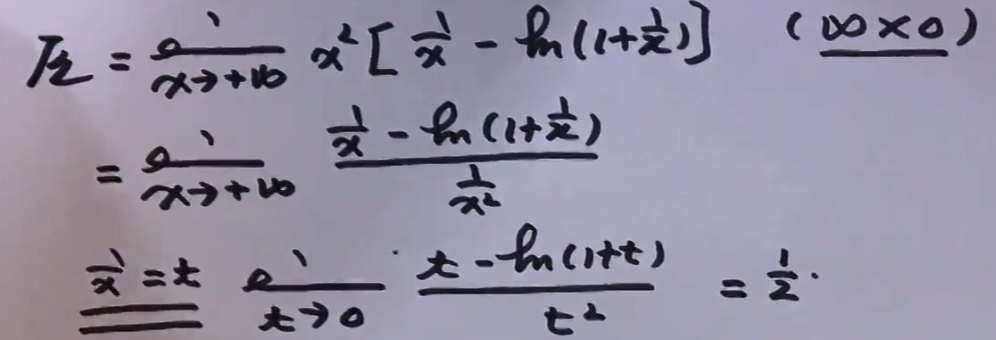 原 = lim x→+∞ x² [ 1/x - ln(1+1/x) ] (∞×0)
= lim x→+∞ (1/x - ln(1+1/x)) / (1/x²)
1/x = t lim t→0 (t - ln(1+t)) / t² = 1/2.